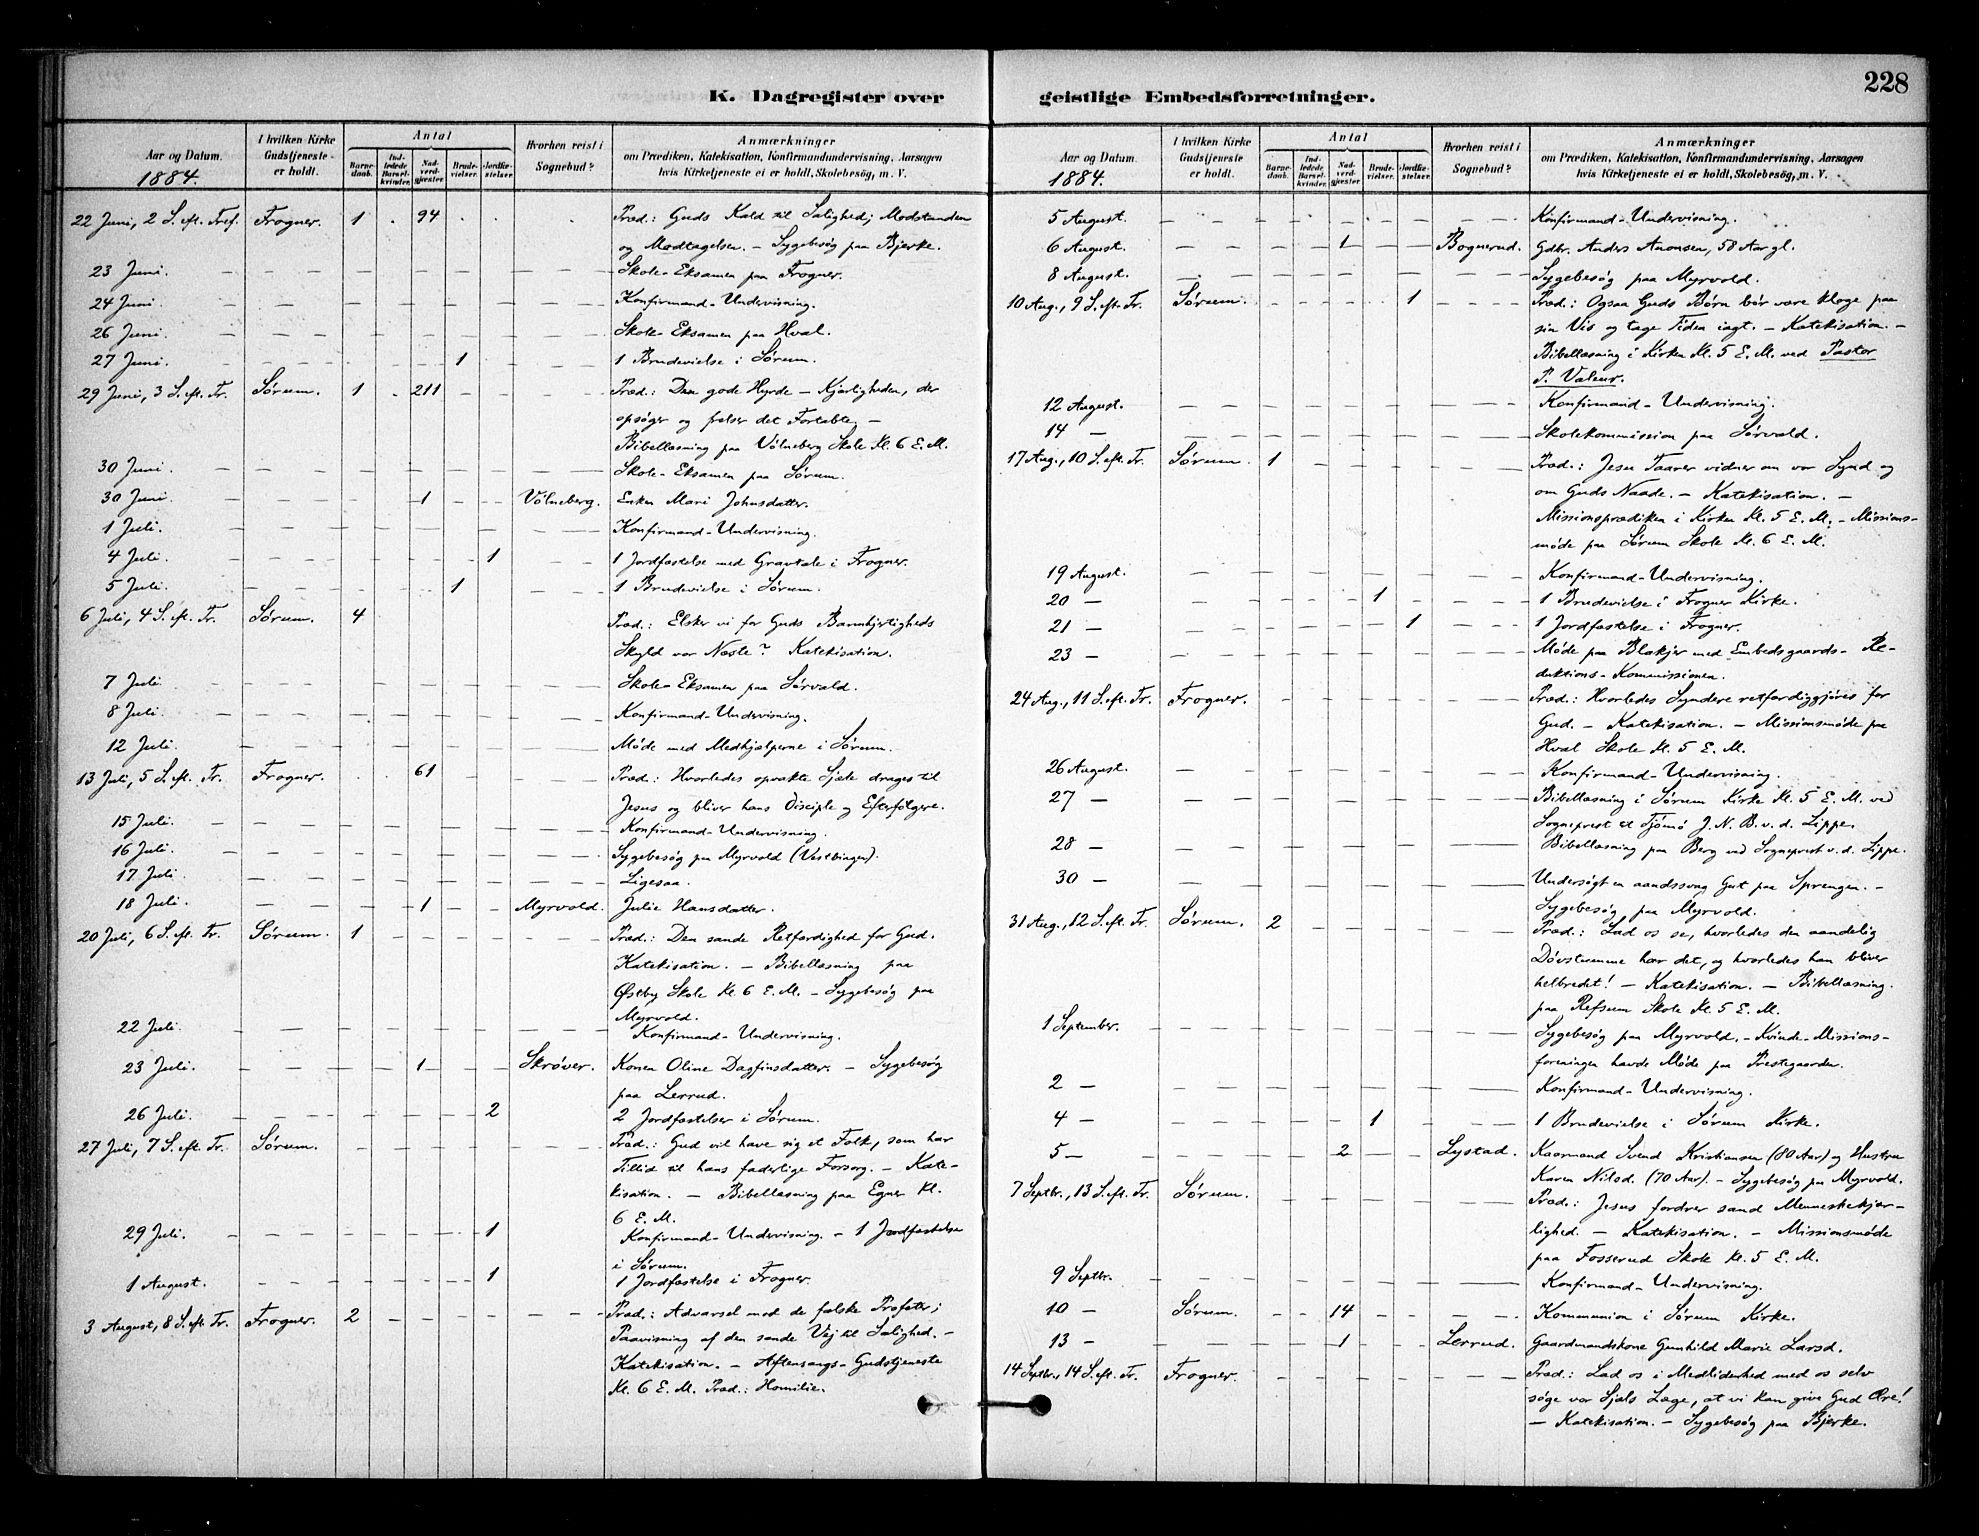 228
K. Dagregister over geistlige Embedsforretninger.
Aar og Datum. 1884.
I hvilken Kirke Gudstjeneste er holdt.
Antal
Barnedaab. Indledede Barselkvinder. Nadverdgjæster. Brudevielser. Jordfæstelser.
Hvorhen reist i Sognebud?
Anmærkninger
om Prædiken, Katekisation, Konfirmandundervisning, Aarsagen
hvis Kirketjeneste ei er holdt, Skolebesøg, m. V.
22 Juni, 2 S. eft. Tref. Frogner. 1 . 94 . . . Præd.: Guds Kald til Salighed; Modstanden
og Modtagelsen. – Sygebesøg paa Bjerke.
23 Juni. – – – – – – – Skole-Eksamen paa Frogner.
24 Juni. – – – – – – – Konfirmand-Undervisning.
26 Juni – – – – – – – Skole-Eksamen paa Hval.
27 Juni. – – – – 1 – – 1 Brudevielse i Sørum.
29 Juni, 3 S. eft. Tr. Sørum. 1 . 211 – – – Præd.: Den gode Hyrde – Kjærligheden, der
opsøger og frelser det Fortabte. –
Bibellæsning paa Vølneberg Skole Kl. 6 E. M.
30 Juni – – – – – – – Skole-Eksamen paa Sørum.
30 Juni – – – 1 – – Vølneberg. Enken Mari Johnsdatter.
1 Juli. – – – – – – – Konfirmand-Undervisning.
4 Juli. – – – – – 1 – 1 Jordfæstelse med Gravtale i Frogner.
5 Juli. – – – – 1 – – 1 Brudevielse i Sørum.
6 Juli, 4 S. eft. Tr. Sørum. 4 Præd.: Elsker vi for Guds Barmhjertigheds
Skyld vor Næste? Katekisation.
7 Juli. – – – – – – – Skole-Eksamen paa Sørvald.
8 Juli. – – – – – – – Konfirmand-Undervisning.
12 Juli. – – – – – – – Møde med Medhjælperne i Sørum.
13 Juli, 5 S. eft. Tr. Frogner. . . 61 – – – Præd.: Hvorledes opvakte Sjæle drages til
Jesus og bliver hans Disciple og Efterfølgere.
15 Juli. – – – – – – – Konfirmand-Undervisning.
16 Juli. – – – – – – – Sygebesøg paa Myrvold (Vestbingen).
17 Juli. – – – – – – – Ligesaa.
18 Juli. – – – 1 – – Myrvold. Julie Hansdatter.
20 Juli, 6 S. eft. Tr. Sørum. 1 – – – – – Præd.: Den sande Retfærdighed for Gud.
Katekisation. – Bibellæsning paa
Østby Skole Kl. 6 E. M. – Sygebesøg paa
Myrvold.
22 Juli. – – – – – – – Konfirmand-Undervisning.
23 Juli. – – – 1 – – Skrøver. Konen Oline Dagfinsdatter. – Sygebesøg
paa Lerrud.
26 Juli. – – – – – 2 – 2 Jordfæstelser i Sørum.
27 Juli, 7 S. eft. Tr. Sørum. – – – – – – Præd.: Gud vil have sig et Folk, som har
Tillid til hans faderlige Forsorg. – Kate-
kisation. – Bibellæsning paa Egner Kl.
6 E. M.
29 Juli. – – – – – 1 – Konfirmand-Undervisning. – 1 Jordfæstelse
i Sørum.
1 August. – – – – – 1 – 1 Jordfæstelse i Frogner.
3 August, 8 S. eft. Tr. Frogner. 2 – – – – – Præd.: Advarsel mod de falske Profeter;
Paavisning af den sande Vej til Salighed. –
Katekisation. – Aftensangs-Gudstjeneste
Kl. 6 E. M. Præd.: Homilie.
Aar og Datum. 1884.
I hvilken Kirke Gudstjeneste er holdt.
Antal
Barnedaab. Indledede Barselkvinder. Nadverdgjæster. Brudevielser. Jordfæstelser.
Hvorhen reist i Sognebud?
Anmærkninger
om Prædiken, Katekisation, Konfirmandundervisning, Aarsagen
hvis Kirketjeneste ei er holdt, Skolebesøg, m. V.
5 August. – – – – – – – Konfirmand-Undervisning.
6 August. – – – 1 – – Bognerud. Gdbr. Anders Anonsen, 58 Aar gl.
8 August. – – – – – – – Sygebesøg paa Myrvold.
10 Aug., 9 S. eft. Tr. Sørum. – – – – 1 – Præd.: Ogsaa Guds Børn bør være kloge paa
sin Vis og tage Tiden iagt. – Katekisation. –
Bibellæsning i Kirken Kl. 5 E. M. ved Pastor
P. Valeur.
12 August. – – – – – – – Konfirmand-Undervisning.
14 – – – – – – – – Skolekommission paa Sørvald.
17 Aug., 10 S. eft. Tr. Sørum. 1 – – – – – Præd.: Jesu Taarer vidner om vor Synd og
om Guds Naade. – Katekisation. –
Missionsprædiken i Kirken Kl. 5 E. M. – Missions-
møde paa Sørum Skole Kl. 6 E. M.
19 August. – – – – – – – Konfirmand-Undervisning.
20 – – – – – 1 – – 1 Brudevielse i Frogner Kirke.
21 – – – – – – 1 – 1 Jordfæstelse i Frogner.
23 – – – – – – – – Møde paa Blakjer med Embedsgaards-Re-
duktions-Kommissionen.
24 Aug., 11 S. eft. Tr. Frogner. – – – – – – Præd.: Hvorledes Syndere retfærdiggjøres for
Gud. – Katekisation. – Missionsmøde paa
Hval Skole Kl. 5 E. M.
26 August. – – – – – – – Konfirmand-Undervisning.
27 – – – – – – – – Bibellæsning i Sørum Kirke Kl. 5 E. M. ved
Sogneprest til Tjømø J. N. B. v. d. Lippe.
28 – – – – – – – – Bibellæsning paa Berg ved Sogneprest v. d. Lippe.
30 – – – – – – – – Undersøgt en aandssvag Gut paa Sprengen. –
Sygebesøg paa Myrvold.
31 Aug., 12 S. eft. Tr. Sørum. 2 – – – – – Præd.: Lad os se, hvorledes den aandelig
Døvstumme har det, og hvorledes han bliver
helbredet! – Katekisation. – Bibellæsning.
paa Refsum Skole Kl. 5 E. M.
1 September. – – – – – – – Sygebesøg paa Myrvold. – Kvinde-Missions-
foreningen havde Møde paa Prestegaarden.
2 – – – – – – – – Konfirmand-Undervisning.
4 – – – – – 1 – – 1 Brudevielse i Sørum Kirke.
5 – – – – 2 – – Lystad. Kaarmand Svend Kristiansen (80 Aar) og Hustru
Karen Nilsd. (70 Aar). – Sygebesøg paa Myrvold.
7 Septbr., 13 S. eft. Tr. Sørum. – – – – – – Præd.: Jesus fordrer sand Menneskekjær-
lighed. – Katekisation. – Missionsmøde
paa Fosserud Skole Kl. 5 E. M.
9 Septbr. – – – – – – – Konfirmand-Undervisning.
10 – Sørum. – – 14 – – – Kommunion i Sørum Kirke.
13 – – – – 1 – – Lerrud. Gaardmandskone Gunhild Marie Larsd.
14 Septbr., 14 S. eft. Tr. Frogner. – – – – – – Præd.: Lad os i Medliderhed med os selv
søge vor Sjæls Læge, at vi kan give Gud Ære!
– Katekisation. – Sygebesøg paa Bjerke.